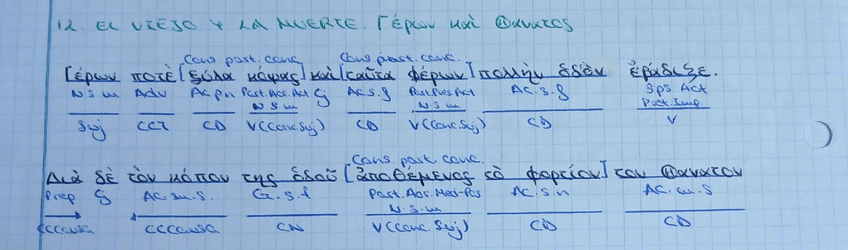 12. EL VIEJO Y LA MUERTE. Γέρων καὶ Θάνατος
Cons. part. conc. Cons. part. conc.
Γέρων ποτὲ [ξύλα κόψας] καὶ [ταῦτα φέρων] πολλὴν ὁδὸν ἐβάδιζε.
N.S.m Adv Ac.p.n Part. Aor. Act Cj Ac.s. Part. Pres Act Ac.s.f 3ps Act
N.S.m N.S.m Pret. Imp
Suj CCT CD V (Conc. Suj) CD V (Conc. Suj) CD V
Cons. part. conc.
Διὰ δὲ τὸν κόπον της ὁδοῦ [ἀποθέμενος τὸ φορτίον] τον Θανατον
Prep Ac.m.s. G.s.f Part. Aor. Med-Pas Ac.s.n Ac.m.s
N.S.m
CCCausa CCCausa CN V (Conc. Suj) CD CD